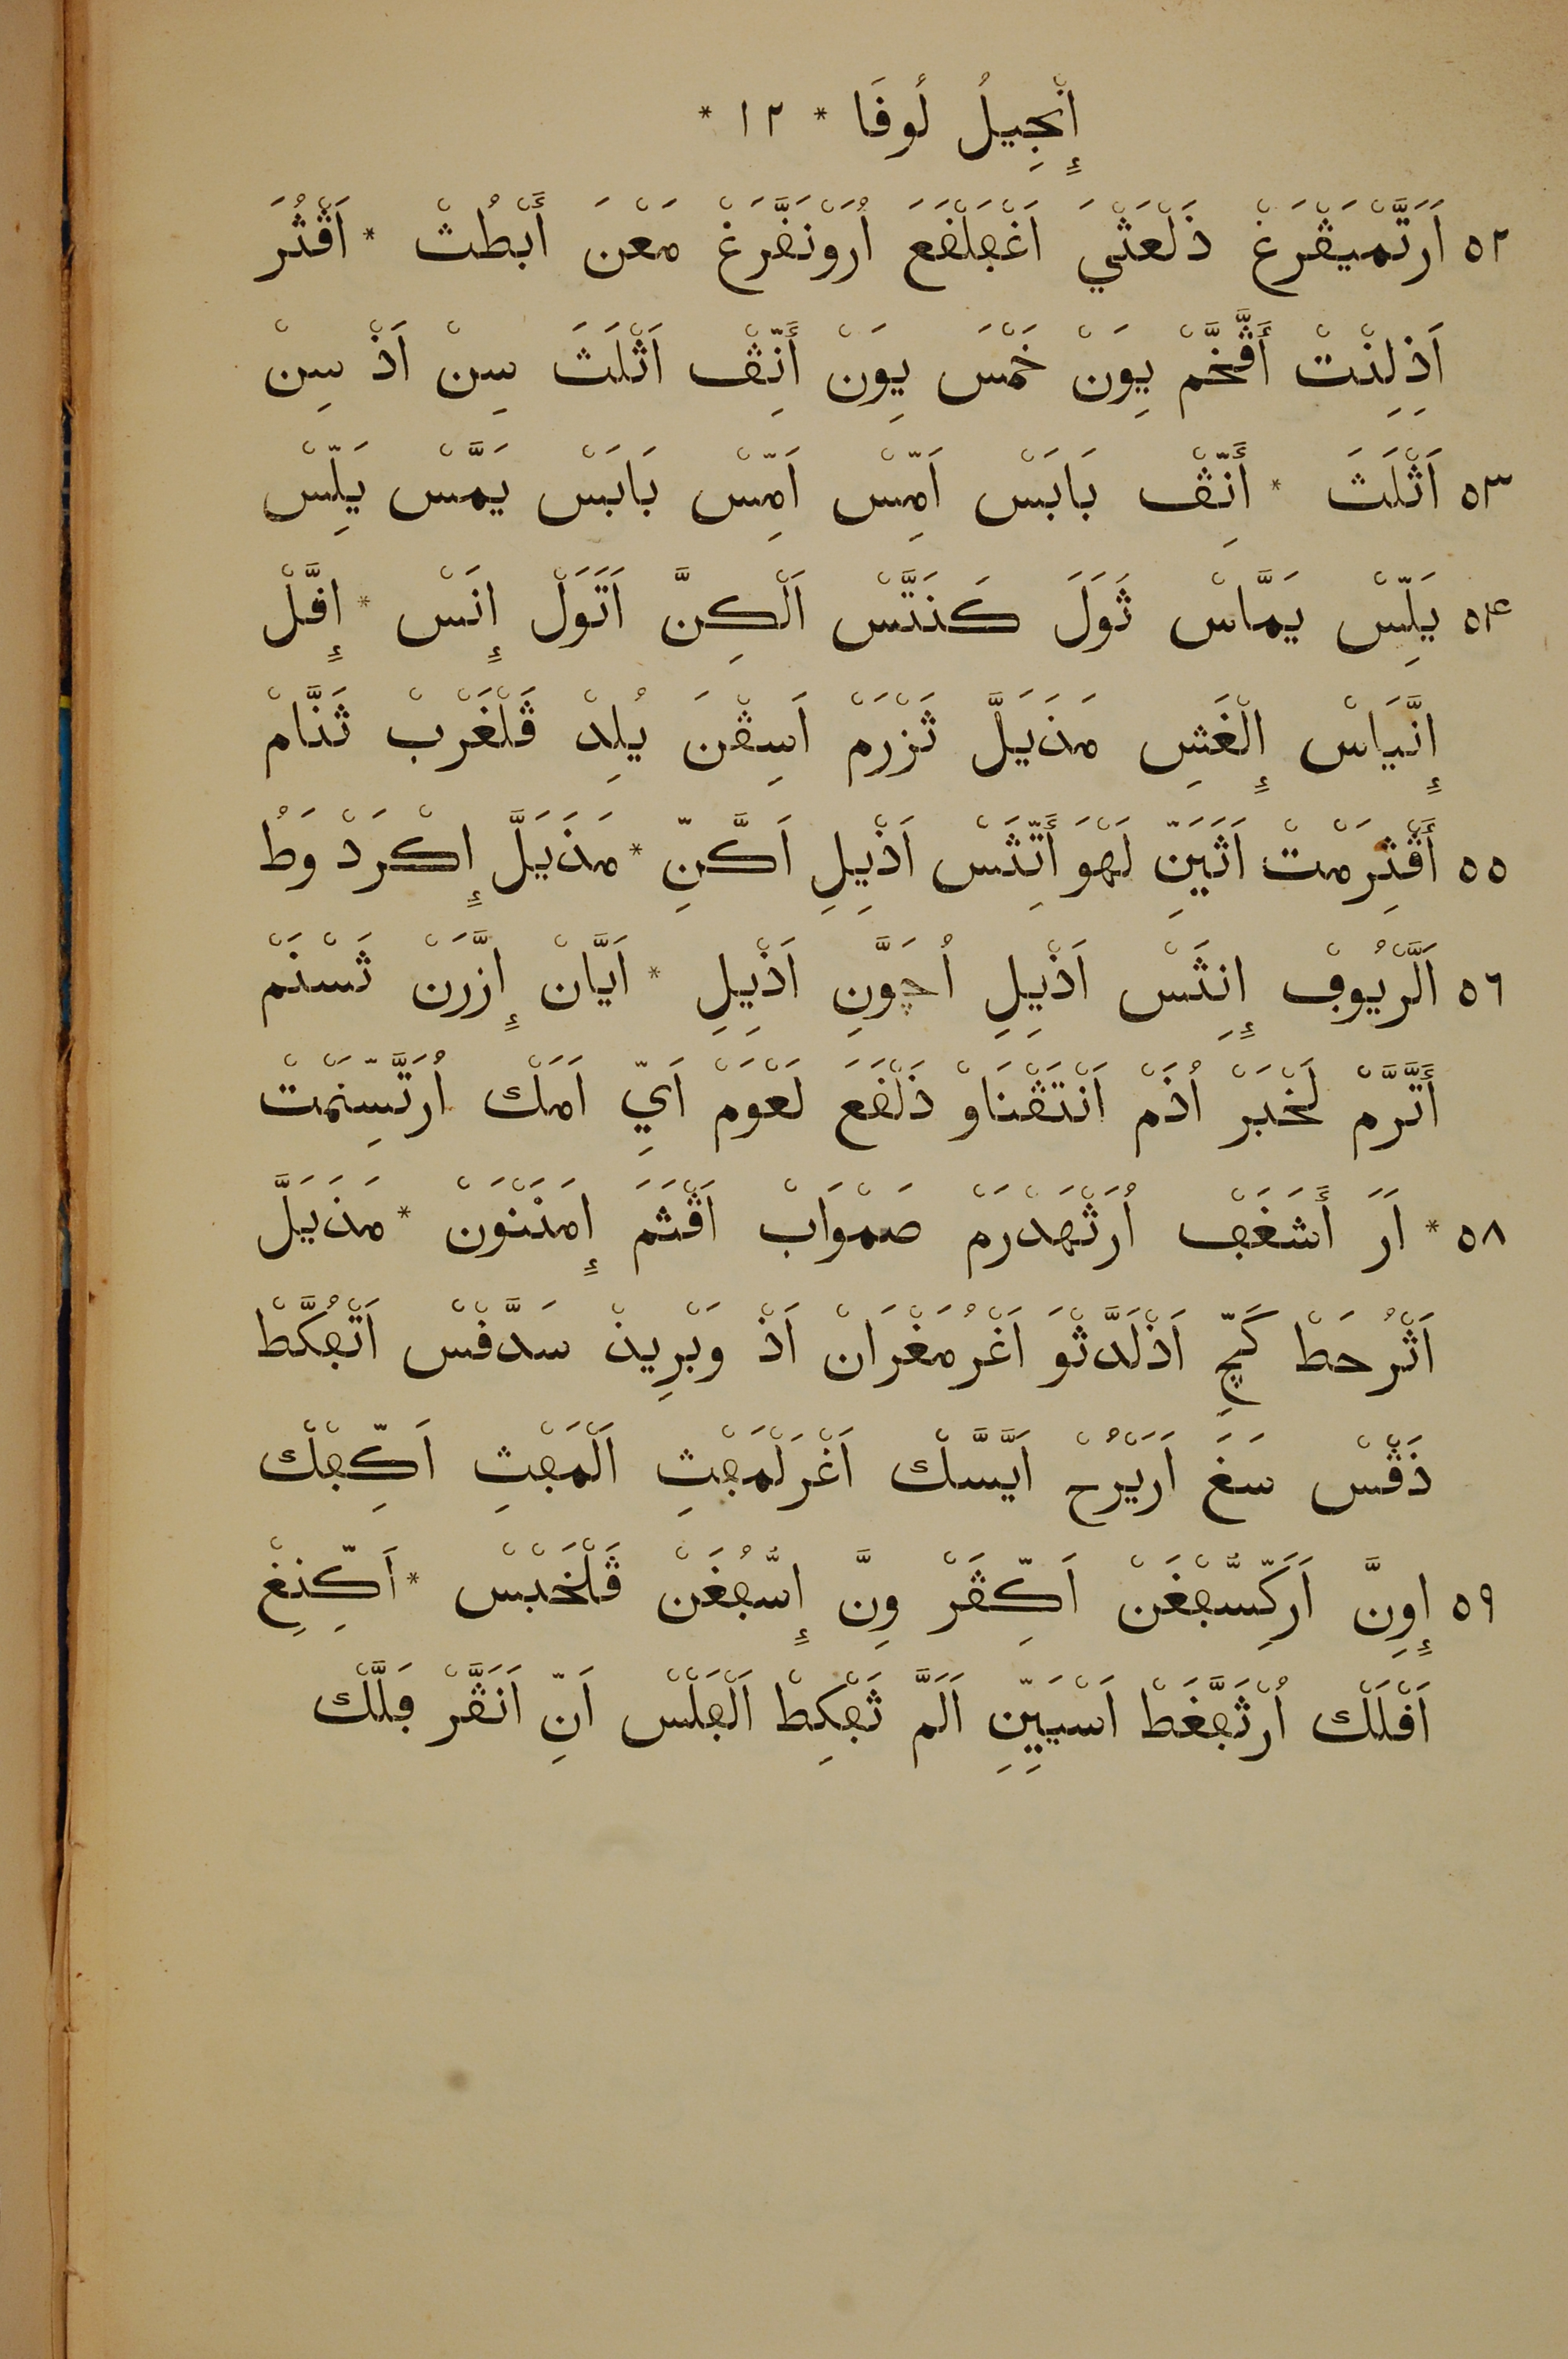 إِنْجِيلُ لُوفَا * ١٢ *
٥٢ اَرَتَّمْيَڢْرَغْ ذَلْعَثْيَ اَغْڢَلْفَعَ اُرَوْنَفَّرَغْ مَعْنَ أَبْطُثْ * اَڤْثُرَ
اَذِلِنْتْ أَڤَّخَّمْ يِوَنْ خَمْسَ يِوَنْ أَنِّڤْ اَثْلَثَ سِنْ اَذْ سِنْ
٥٣ اَثْلَثَ * أَنِّڤْ بَابَسْ اَمِّسْ اَمِّسْ بَابَسْ يَمَّسْ يَلِّسْ
٥٤ يَلِّسْ يَمَّاسْ ثَوَلَ كَنَتَّسْ اَلْكِنَّ اَتَوَلْ إِنَسْ * إِڢَّلْ
إِنَّيَاسْ إِلْغَشِ مَذَيَلَّ ثَزْرَمْ اَسِڤْنَ يُلِدْ ڤَلْغَرْبْ ثَنَّامْ
٥٥ أَڤْثِرَمْتْ اَثَيَنِّ لَهَوَ أَتِّثَسْ اَذْيِلِ اَكَّنِّ * مَذَيَلَّ إِكْرَدْ وَطُ
٥٦ اَلرَّيُوڢْ إِنِثَسْ اَذْيِلِ اُڃَوَّنِ اَذْيِلِ * اَيَّانْ إِزَّرَنْ ثَسْنَمْ
أَتَّرَّمْ لَخْبَرْ اُذَمْ اَنْتَڤْنَاوْ ذَلْفَعَ لَعْوَمْ اَيِّ اَمَكْ اُرَتَّسِّنَمْتْ
٥٨ * اَرَ أَشَغَڢْ اُرَثْهَدْرَمْ صَمْوَابْ اَڤْثَمَ إِمَنَنْوَنْ * مَذَيَلَّ
اَثْرُحَطْ كَڃِّ اَذْلَدَّثْوَ اَغْرُمَغْرَانْ اَذْ وَبْرِيذْ سَدَّفْسْ اَتْڢُكَّطْ
ذَڤْسْ سَغَ اَرَيْرُحْ اَيَّسَّكْ اَغْرَلْمَڢْثِ اَلْمَڢْثِ اَكِّڢْكْ
٥٩ إِوِنَّ اَرَكِّسُّڢْغَنْ اَكِّڤَرْ وِنَّ إِسُّڢُغَنْ ڤَلْخَبْسْ * اَكِّنِغْ
اَفْلَكْ اُرْثَڢَّغَطْ اَسْيَيِّنِ اَلَمَّ ثَڢْكِطْ اَلْڢَلْسْ اَنِّ اَنَڤَّرْ ڢَلَّكْ